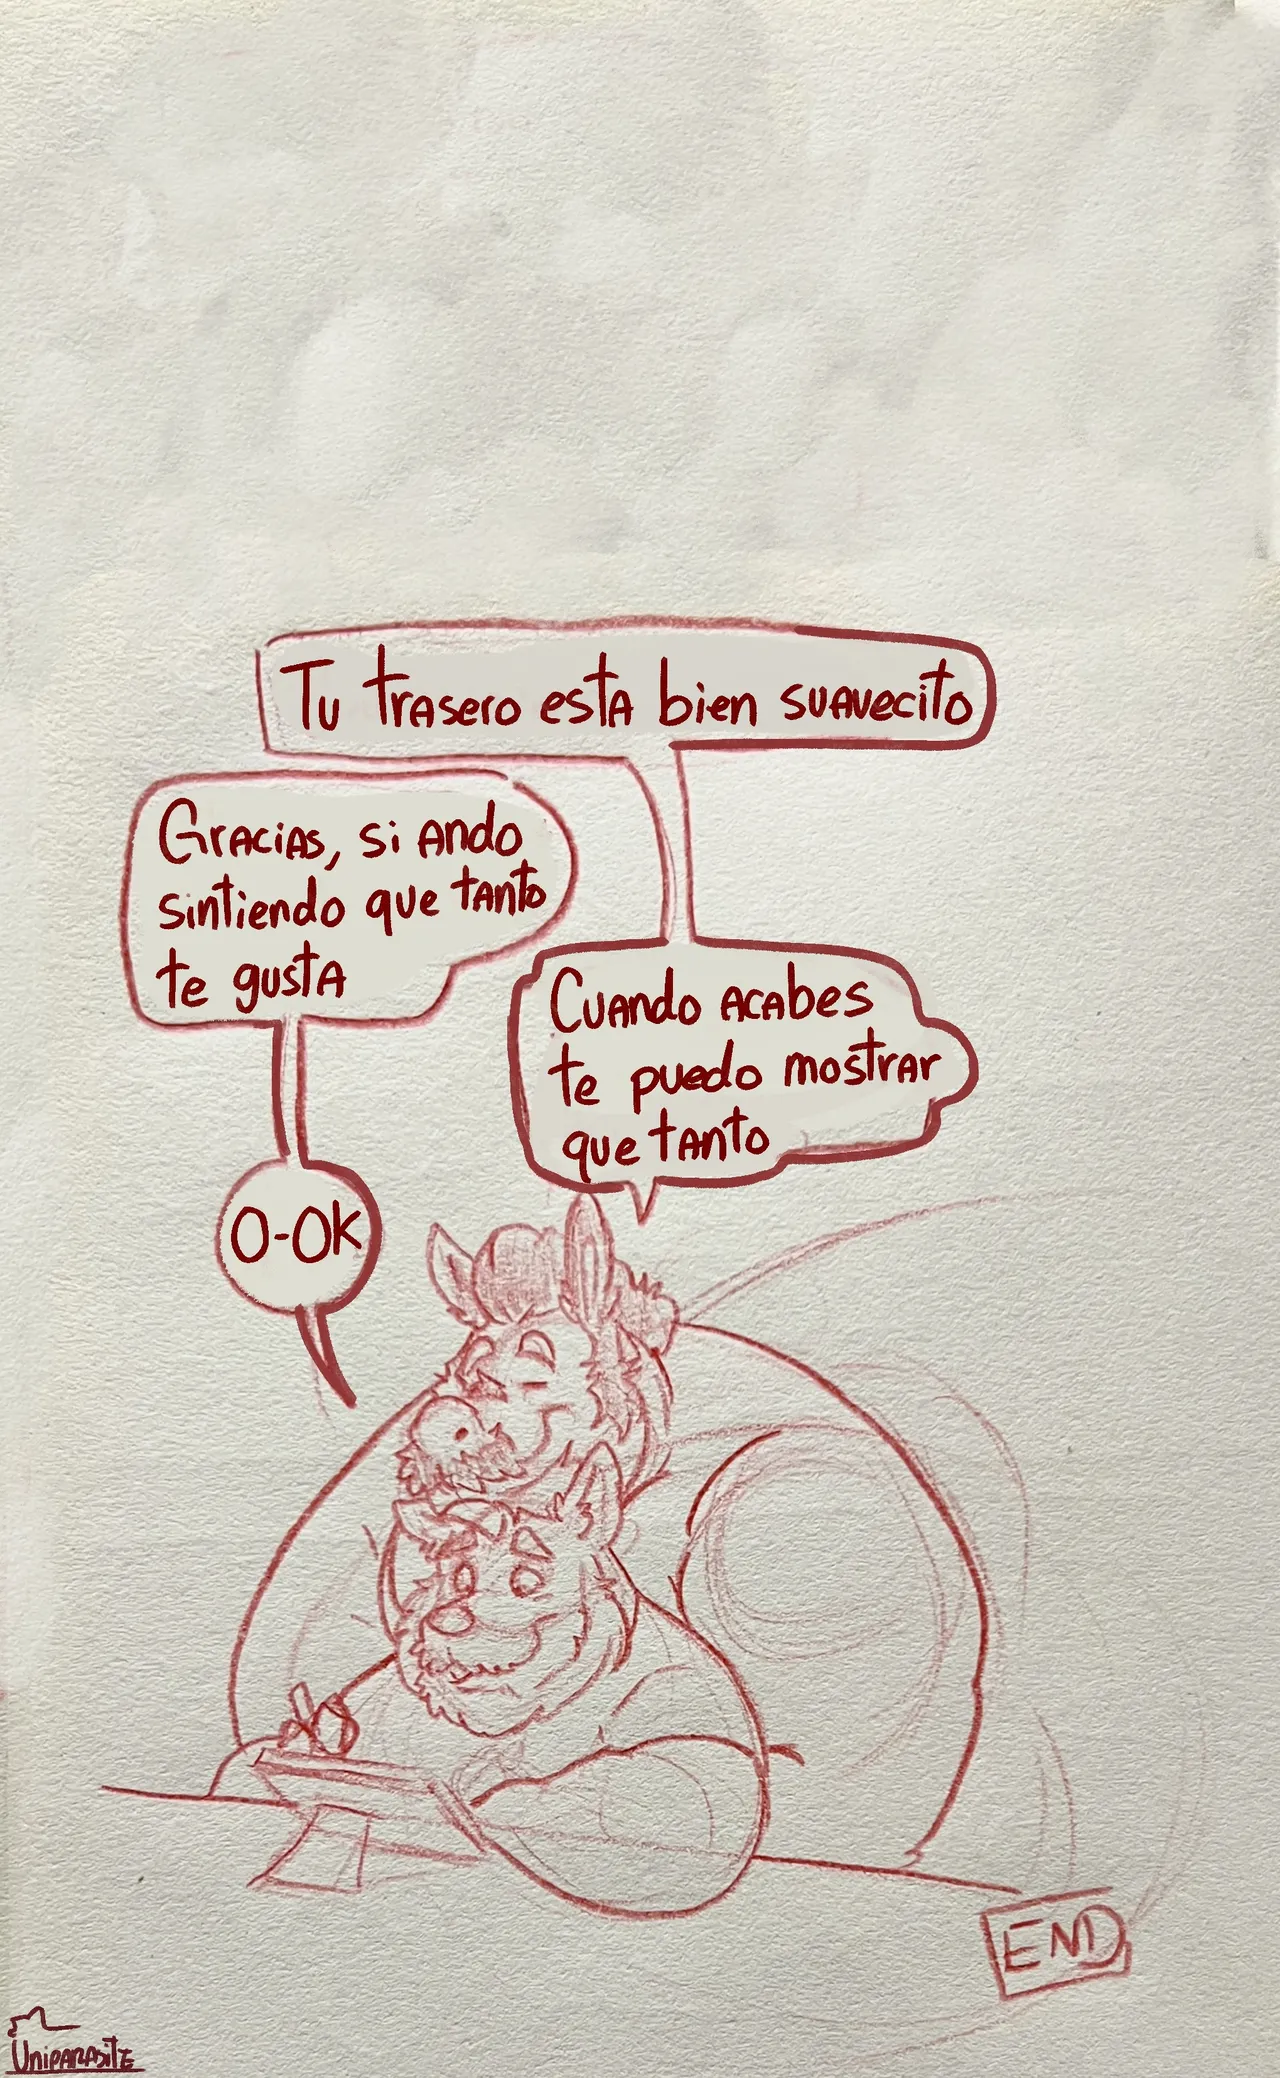 Tu trasero esta bien suavecito
Gracias, si ando
sintiendo que tanto
te gusta
Cuando acabes
te puedo mostrar
que tanto
O-OK
END
Uniparasite